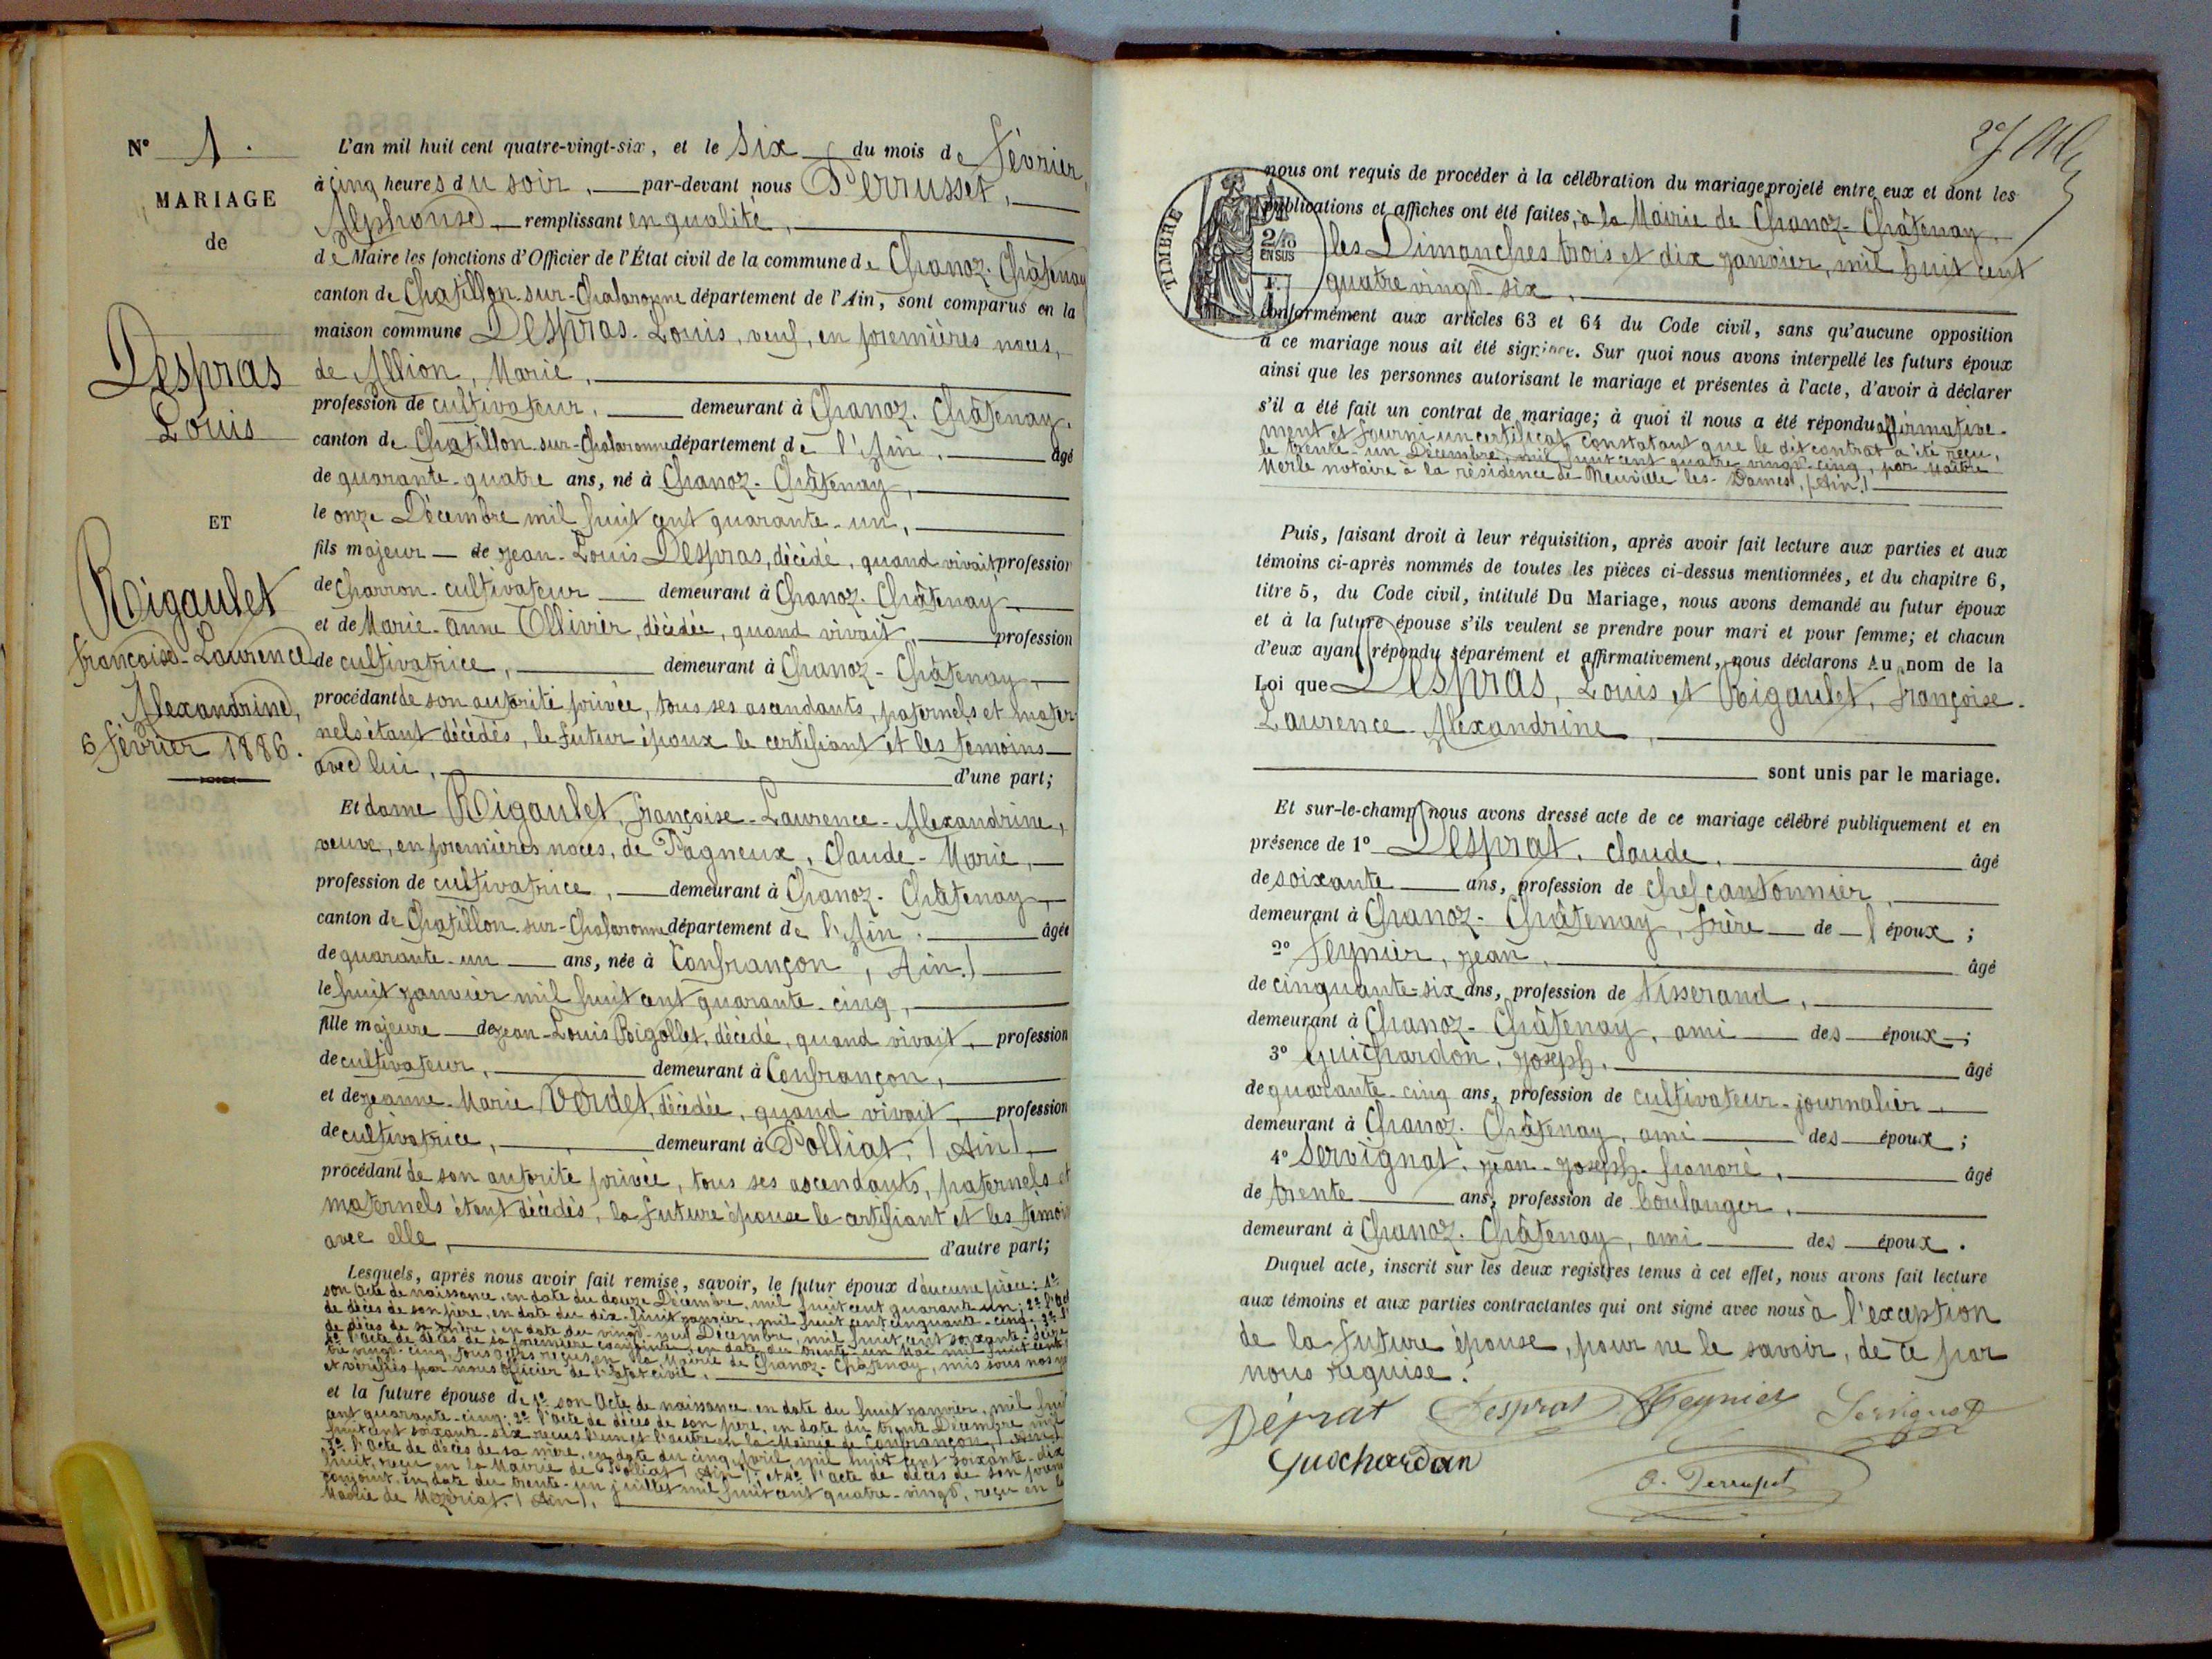 N° 1.
MARIAGE
de
Despras
Louis
ET
Rigaulet
françoise-Laurence
Alexandrine,
6 février 1886.
L'an mil huit cent quatre-vingt-six, et le six du mois de février,
à cinq heures du soir, par-devant nous Perrusset,
Alphonse remplissant en qualité,
de Maire les fonctions d'Officier de l'État civil de la commune de Chanoz-Châtenay
canton de Chatillon-sur-Chalaronne département de l'Ain, sont comparus en la
maison commune Despras-Louis, veuf, en premières noces,
de Allion, Marie,
profession de cultivateur, demeurant à Chanoz-Châtenay,
canton de Chatillon-sur-Chalaronne département de l'Ain, âgé
de quarante-quatre ans, né à Chanoz-Châtenay,
le onze Décembre mil huit cent quarante-un,
fils majeur de jean-Louis Despras, décédé, quand vivait profession
de charron-cultivateur demeurant à Chanoz-Châtenay
et de Marie-anne Ollivier, décédée, quand vivait, profession
de cultivatrice, demeurant à Chanoz-Châtenay,
procédant de son autorité privée, tous ses ascendants, paternels et mater
nels étant décédés, le futur époux le certifiant et les témoins
avec lui, d'une part;
Et dame Rigaulet, françoise-Laurence-Alexandrine,
veuve, en premières noces, de Pagneux, Claude-Marie,
profession de cultivatrice, demeurant à Chanoz-Châtenay,
canton de Chatillon-sur-Chalaronne département de l'Ain, âgée
de quarante-un ans, née à Confrançon, Ain.)
le huit janvier mil huit cent quarante-cinq,
fille majeure de jean-Louis Rigollet, décédé, quand vivait, profession
de cultivateur, demeurant à Confrançon,
et de jeanne-Marie Verdet, décédée, quand vivait, profession
de cultivatrice, demeurant à Polliat, (Ain),
procédant de son autorité privée, tous ses ascendants, paternels et
maternels étant décédés, la future épouse le certifiant et les témoin
avec elle, d'autre part;
Lesquels, après nous avoir fait remise, savoir, le futur époux d'aucune pièce: 1°
son acte de naissance, en date du douze Décembre, mil huit cent quarante-un; 2° l'act
de décès de son père, en date du dix-huit janvier, mil huit cent cinquante-cinq; 3° l'
de décès de sa mère, en date du vingt-neuf Décembre, mil huit cent soixante-seize
4° l'acte de décès de sa première conjointe, en date du trente-un Mai mil huit cent
vingt-cinq, tous reçus en la Mairie de Chanoz-Châtenay, mis sous nos
et vérifiés par nous officier de l'état civil.
et la future épouse de 1° son Acte de naissance en date du huit janvier, mil huit
cent quarante-cinq; 2° l'acte de décès de son père, en date du trente Décembre mil
huit cent soixante-six reçus l'un et l'autre en la Mairie de Confrançon, (Ain)
3° l'Acte de décès de sa mère, en date du cinq avril, mil huit cent soixante-dix
huit, reçu en la Mairie de Polliat (Ain); et 4° l'acte de décès de son prem
conjoint, en date du trente-un juillet mil huit cent quatre-vingt, reçu en la
Mairie de Mézériat, (Ain),
TIMBRE
2/10
EN SUS
nous ont requis de procéder à la célébration du mariage projeté entre eux et dont les
publications et affiches ont été faites, à la Mairie de Chanoz-Châtenay,
les Dimanches trois et dix janvier, mil huit cent
quatre vingt-six,
conformément aux articles 63 et 64 du Code civil, sans qu'aucune opposition
à ce mariage nous ait été signifiée. Sur quoi nous avons interpellé les futurs époux
ainsi que les personnes autorisant le mariage et présentes à l'acte, d'avoir à déclarer
s'il a été fait un contrat de mariage; à quoi il nous a été répondu affirmative-
ment et fourni un certificat constatant que le dit contrat a été reçu,
le trente-un Décembre, mil huit cent quatre vingt-cinq, par Maître
Merle notaire à la résidence de Neuville-les-Dames, (Ain.)
Puis, faisant droit à leur réquisition, après avoir fait lecture aux parties et aux
témoins ci-après nommés de toutes les pièces ci-dessus mentionnées, et du chapitre 6,
titre 5, du Code civil, intitulé Du Mariage, nous avons demandé au futur époux
et à la future épouse s'ils veulent se prendre pour mari et pour femme; et chacun
d'eux ayant répondu séparément et affirmativement, nous déclarons Au nom de la
Loi que Despras, Louis et Rigaulet, françoise-
Laurence-Alexandrine,
sont unis par le mariage.
Et sur-le-champ nous avons dressé acte de ce mariage célébré publiquement et en
présence de 1° Desprat, claude, âgé
de soixante ans, profession de chef cantonnier,
demeurant à Chanoz-Châtenay, frère de l'époux;
2° Feynier, jean, âgé
de cinquante-six ans, profession de tisserand,
demeurant à Chanoz-Châtenay, ami des époux;
3° Guichardon, joseph, âgé
de quarante-cinq ans, profession de cultivateur-journalier
demeurant à Chanoz-Châtenay, ami des époux;
4° Servignat, jean-joseph-honoré, âgé
de trente ans, profession de boulanger,
demeurant à Chanoz-Châtenay, ami des époux.
Duquel acte, inscrit sur les deux registres tenus à cet effet, nous avons fait lecture
aux témoins et aux parties contractantes qui ont signé avec nous à l'exception
de la future épouse, pour ne le savoir, de ce par
nous requise.
Déprat Desprat Feynier Servignat
Guichardon
a. Perrusset